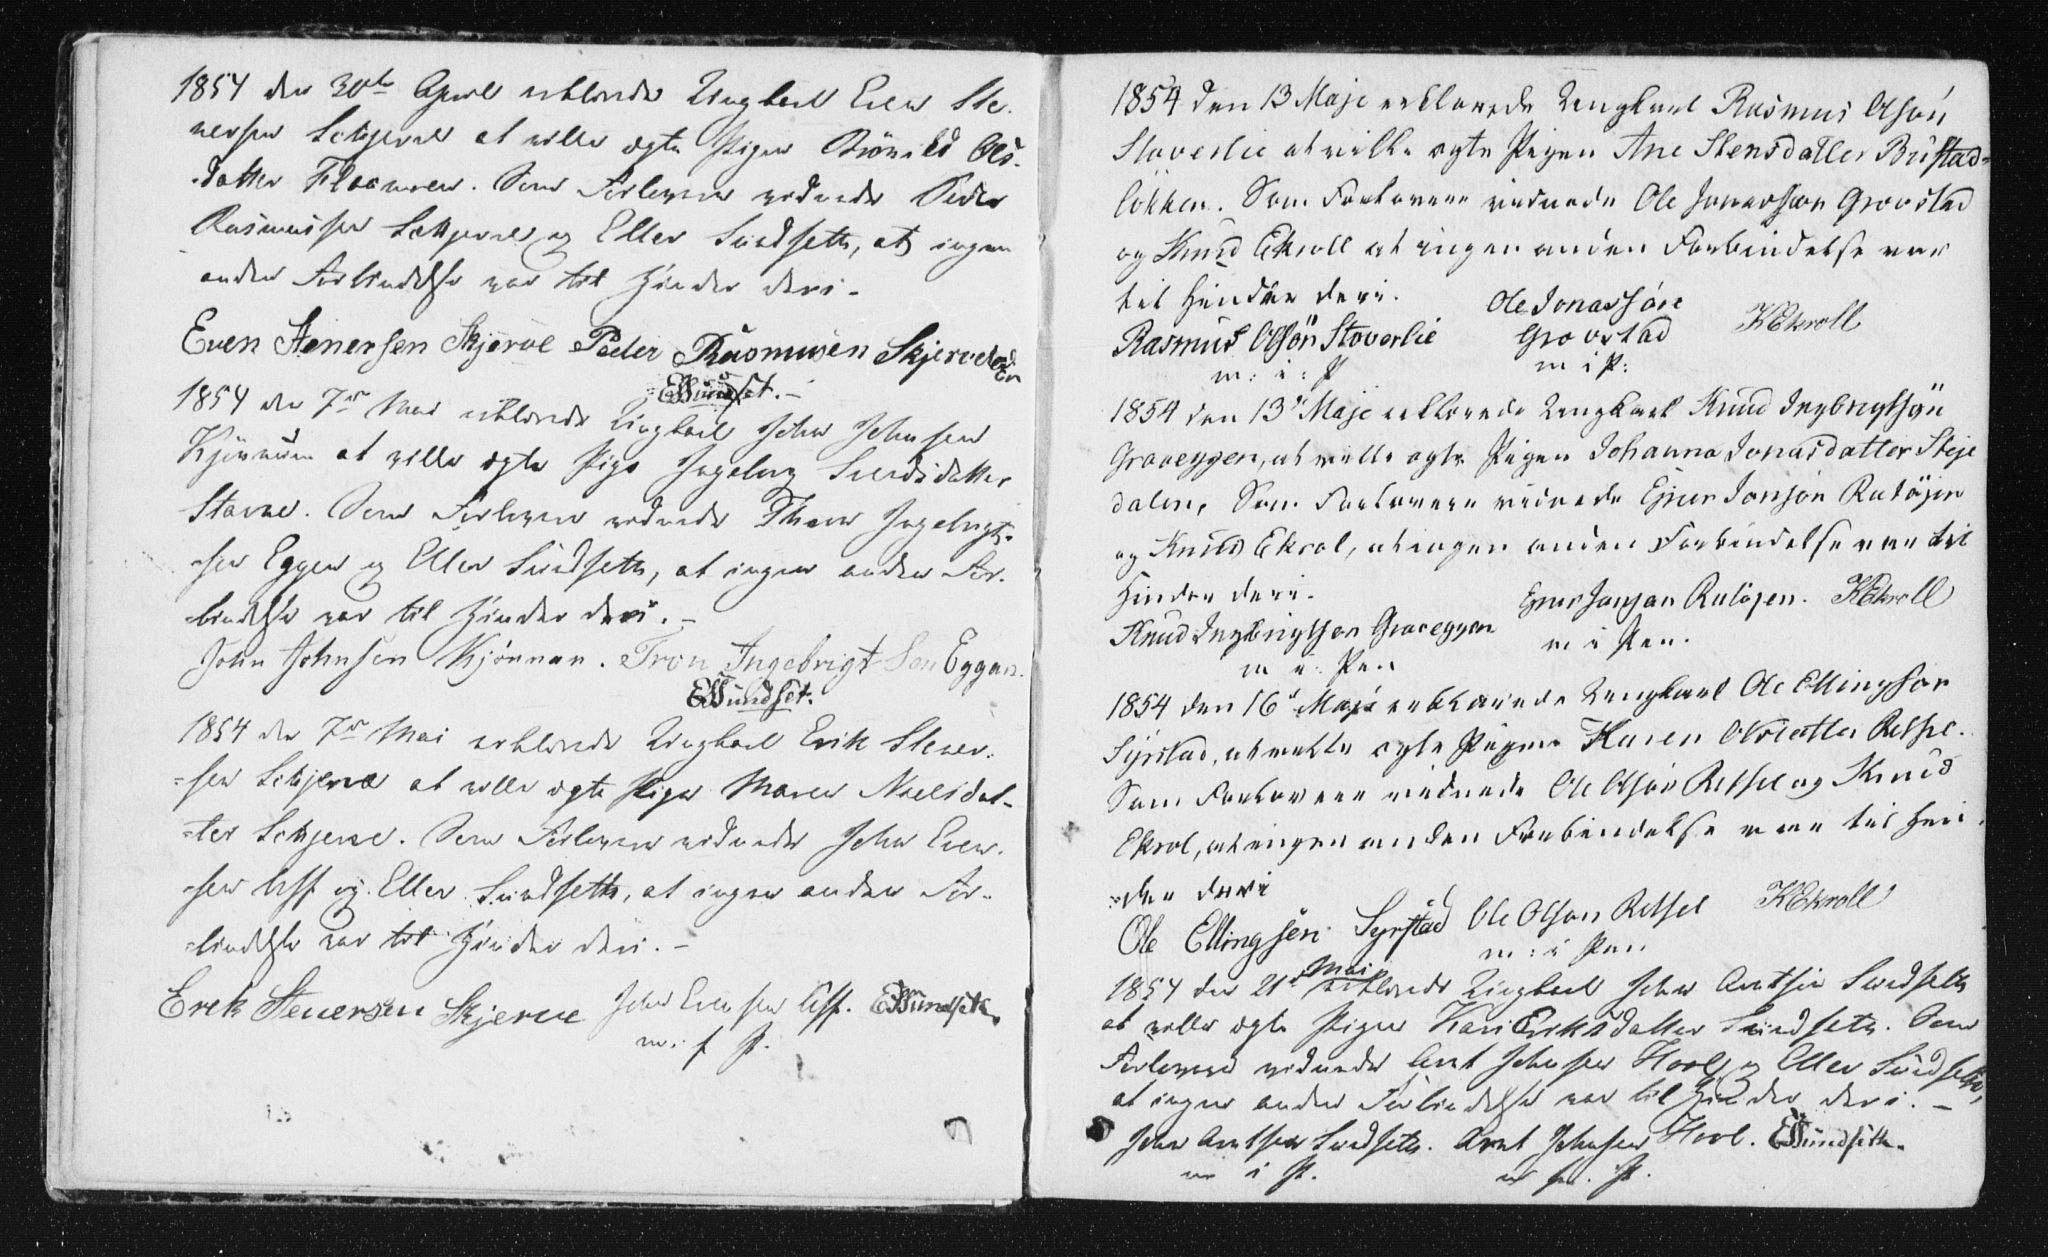 1854 den 30te April erklærede Ungkarl Even Ste-
nersen Schjerve at ville ægte Pigen Brönild Ols-
datter Flaamoen. Som Forlovere vidnede Peder
Rasmussen Schjerve og Eller Sundseth, at ingen
anden Forbindelse var til Hinder deri.
Even Stenersen Skjerve Peder Rasmusen Skjerve
ESundset.
1854 den 7de Mai erklærede Ungkarl John Johnsen
Kjönnum at ville ægte Pige Ingeborg Sivertsdatter
Stavne. Som Forlovere vidnede Thron Ingebrigt-
sen Eggen og Eller Sundseth, at ingen anden For-
bindelse var til Hinder deri.
John Johnsen Kjönnan. Tron Ingebrigt Sen Eggen.
ESundset.
1854 den 7de Mai erklærede Ungkarl Erik Stener-
sen Schjerve at ville ægte Pigen Maren Nielsdat-
ter Schjerve. Som Forlovere vidnede John Even-
sen Uff og Eller Sundseth, at ingen anden For-
bindelse var til Hinder deri.
Erek Stenersen Skjerve John Evensen Uff. ESundseth.
m. f P.
1854 den 13 Maje erklærede Ungkarl Rasmus Olsön
Stoverlie at ville ægte Pigen Ane Stensdatter Bustad-
lökken. Som Forlovere vidnede Ole Jonassøn Grovstad
og Knud Ekroll at ingen anden Forbindelse var
til Hinder deri.
Ole Jonassön KEkroll
Rasmus Olsön Stoverlie Grovstad
m: i: P m i P:
1854 den 13de Maje erklærede Ungkarl Knud Ingbrigtsøn
Graveggen, at ville ægte Pigen Johanna Jonasdatter Skje
dalen, Som Forlovere vidnede Ejner Jonsøn Rutöjen
og Knud Ekrol, at ingen anden Forbindelse var til
Hinder deri.
Ejner Jonsøn Rutöjen. KEkroll
Knud Ingbrigtsen Graveggen
m i Pen.
m i: Pen
1854 den 16de Maje erklærede Ungkarl Ole Ellingsøn
Syrstad, at ville ægte Pigen Karen Olsdatter Retsel.
Som Forlovere vidnede Ole Olsøn Retsel og Knud
Ekrol, at ingen anden Forbindelse var til Hin-
der deri
Ole Ellingsen Syrstad Ole Olsøn Retsel KEkroll
m: i Pen
1854 den 21de Mai erklærede Ungkarl John Arntsen Sundseth
at ville ægte Pigen Kari Eriksdatter Sundseth. Som
Forlovere vidnede Arnt Johnsen Hoel og Eller Sundseth,
at ingen anden Forbindelse var til Hinder deri.
John Arntsen Sundseth. Arnt Johnsen Hoel. ESundseth.
m i P. m f. P.